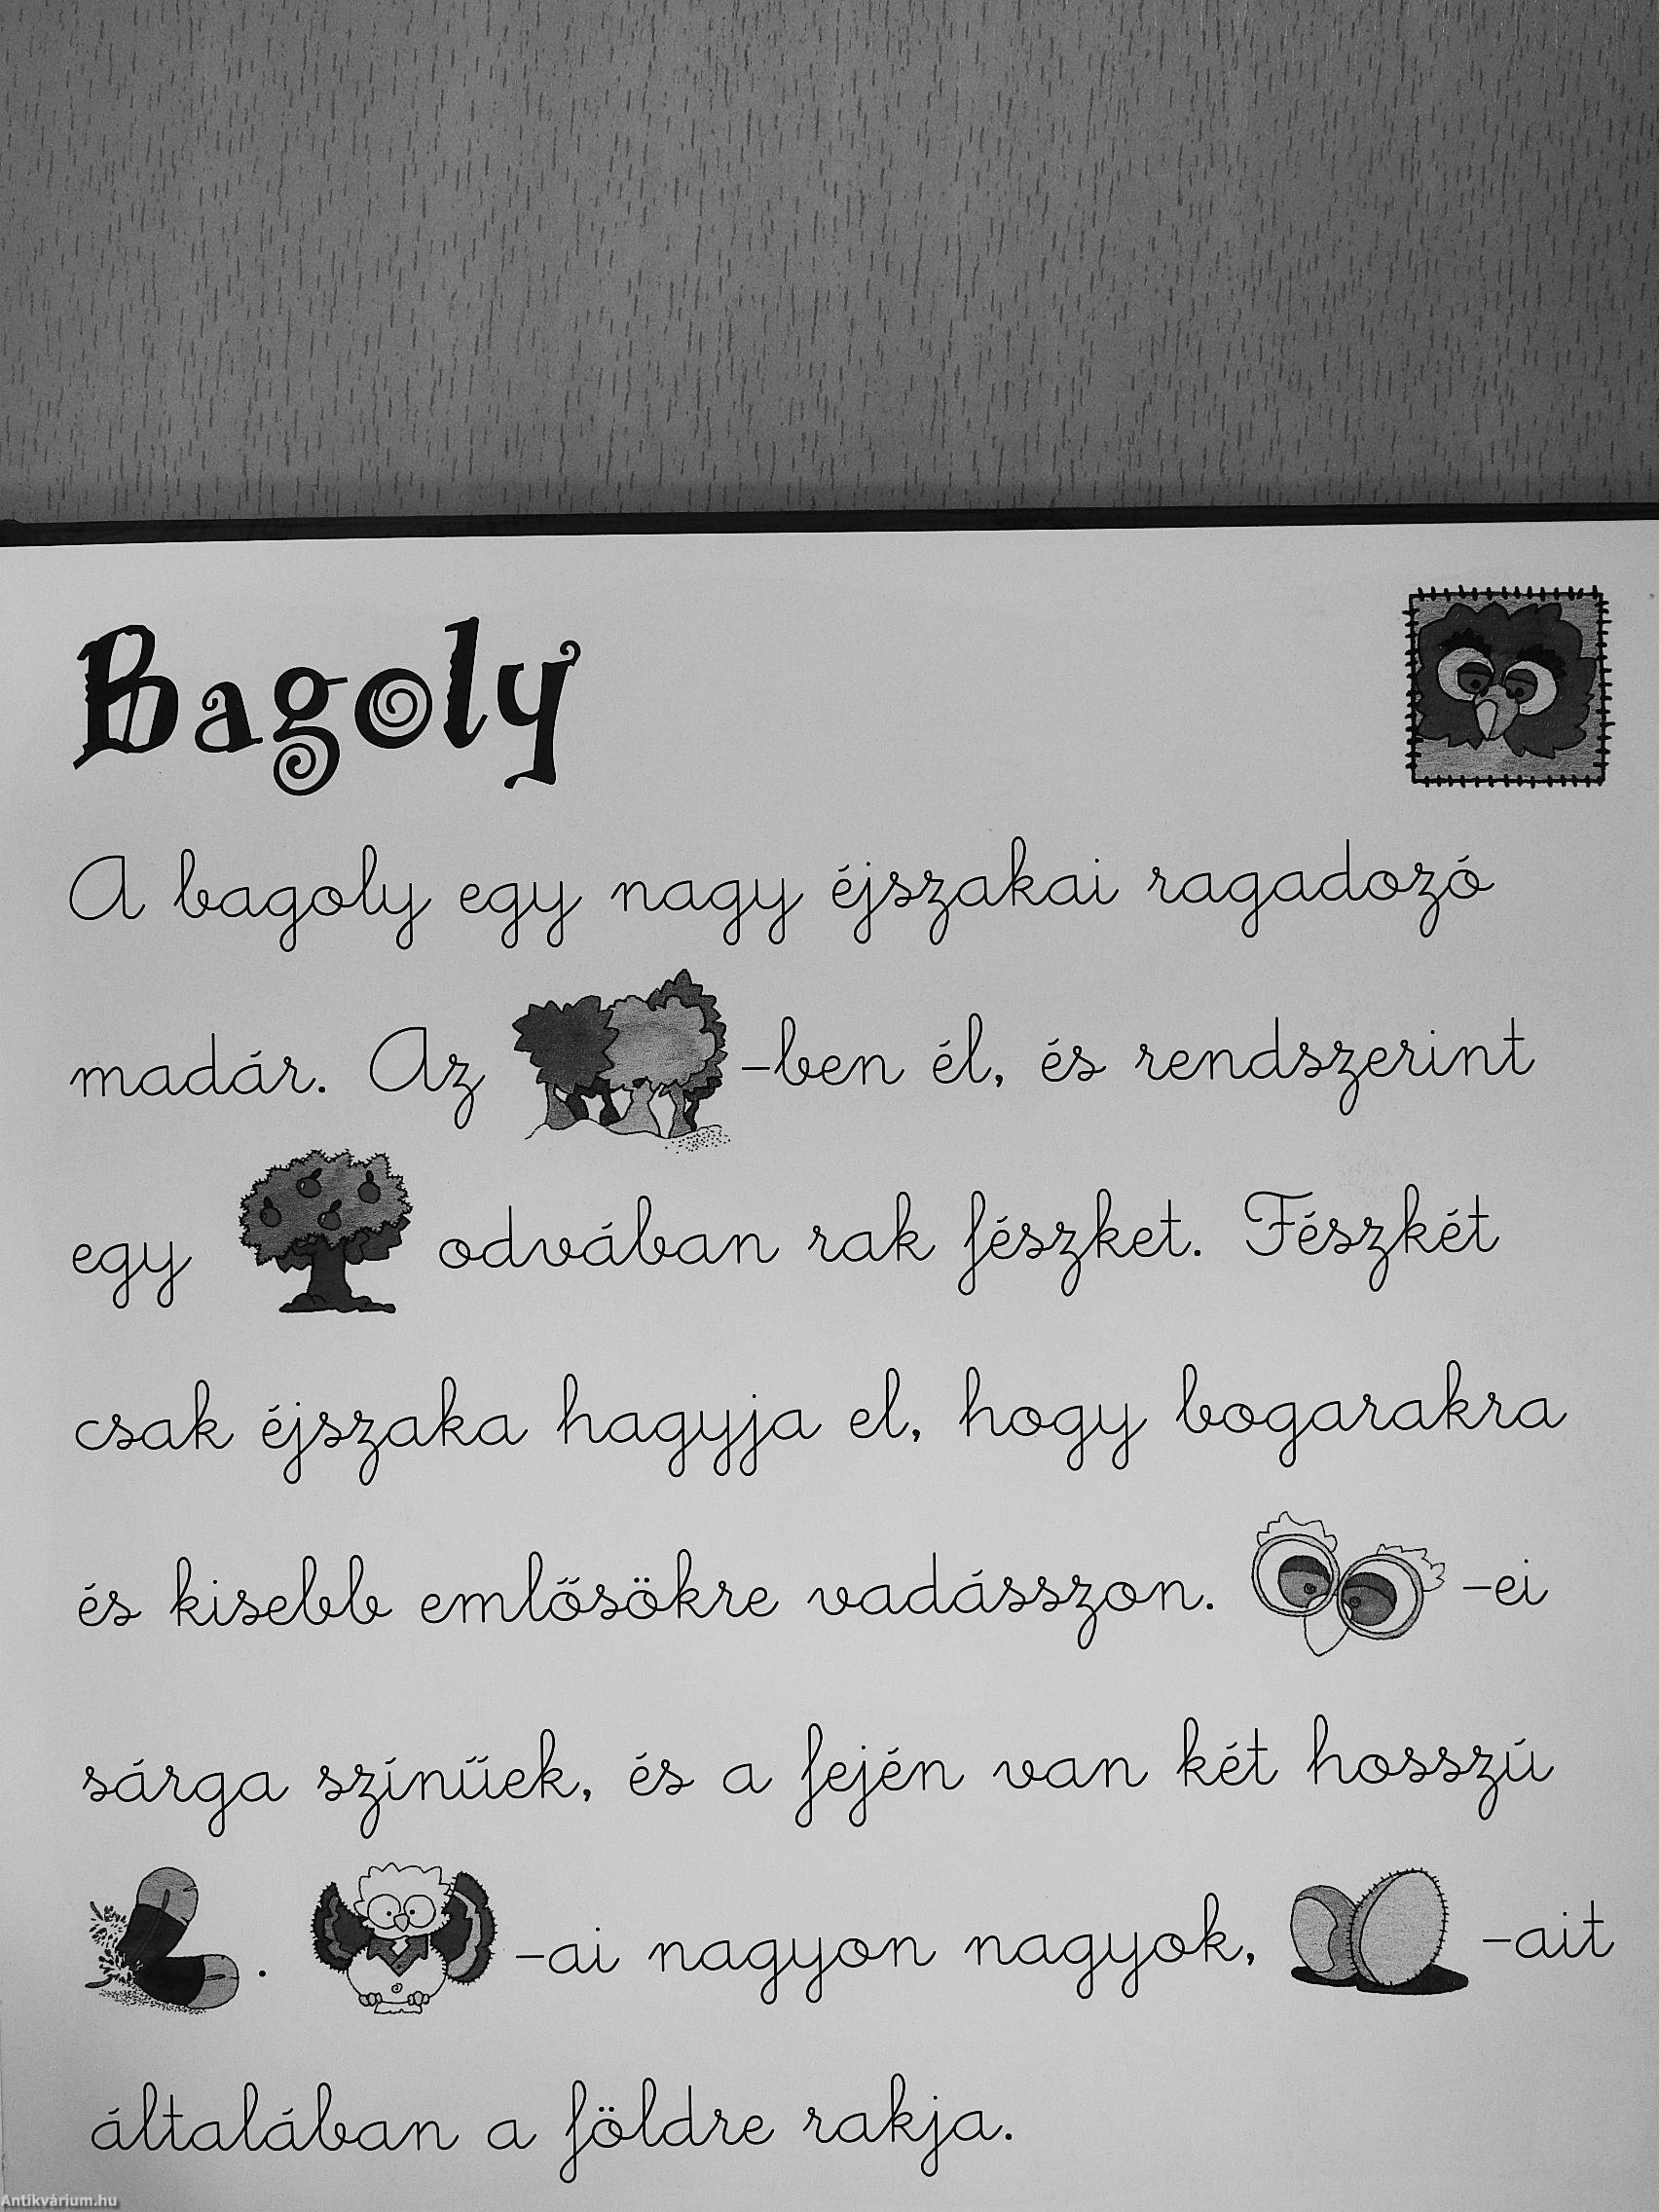 Bagoly
A bagoly egy nagy éjszakai ragadozó
madár. Az -ben él, és rendszerint
egy odvában rak fészket. Fészkét
csak éjszaka hagyja el, hogy bogarakra
és kisebb emlősökre vadásszon. -ei
sárga színűek, és a fején van két hosszú
. -ai nagyon nagyok, -ait
általában a földre rakja.
Antikvárium.hu